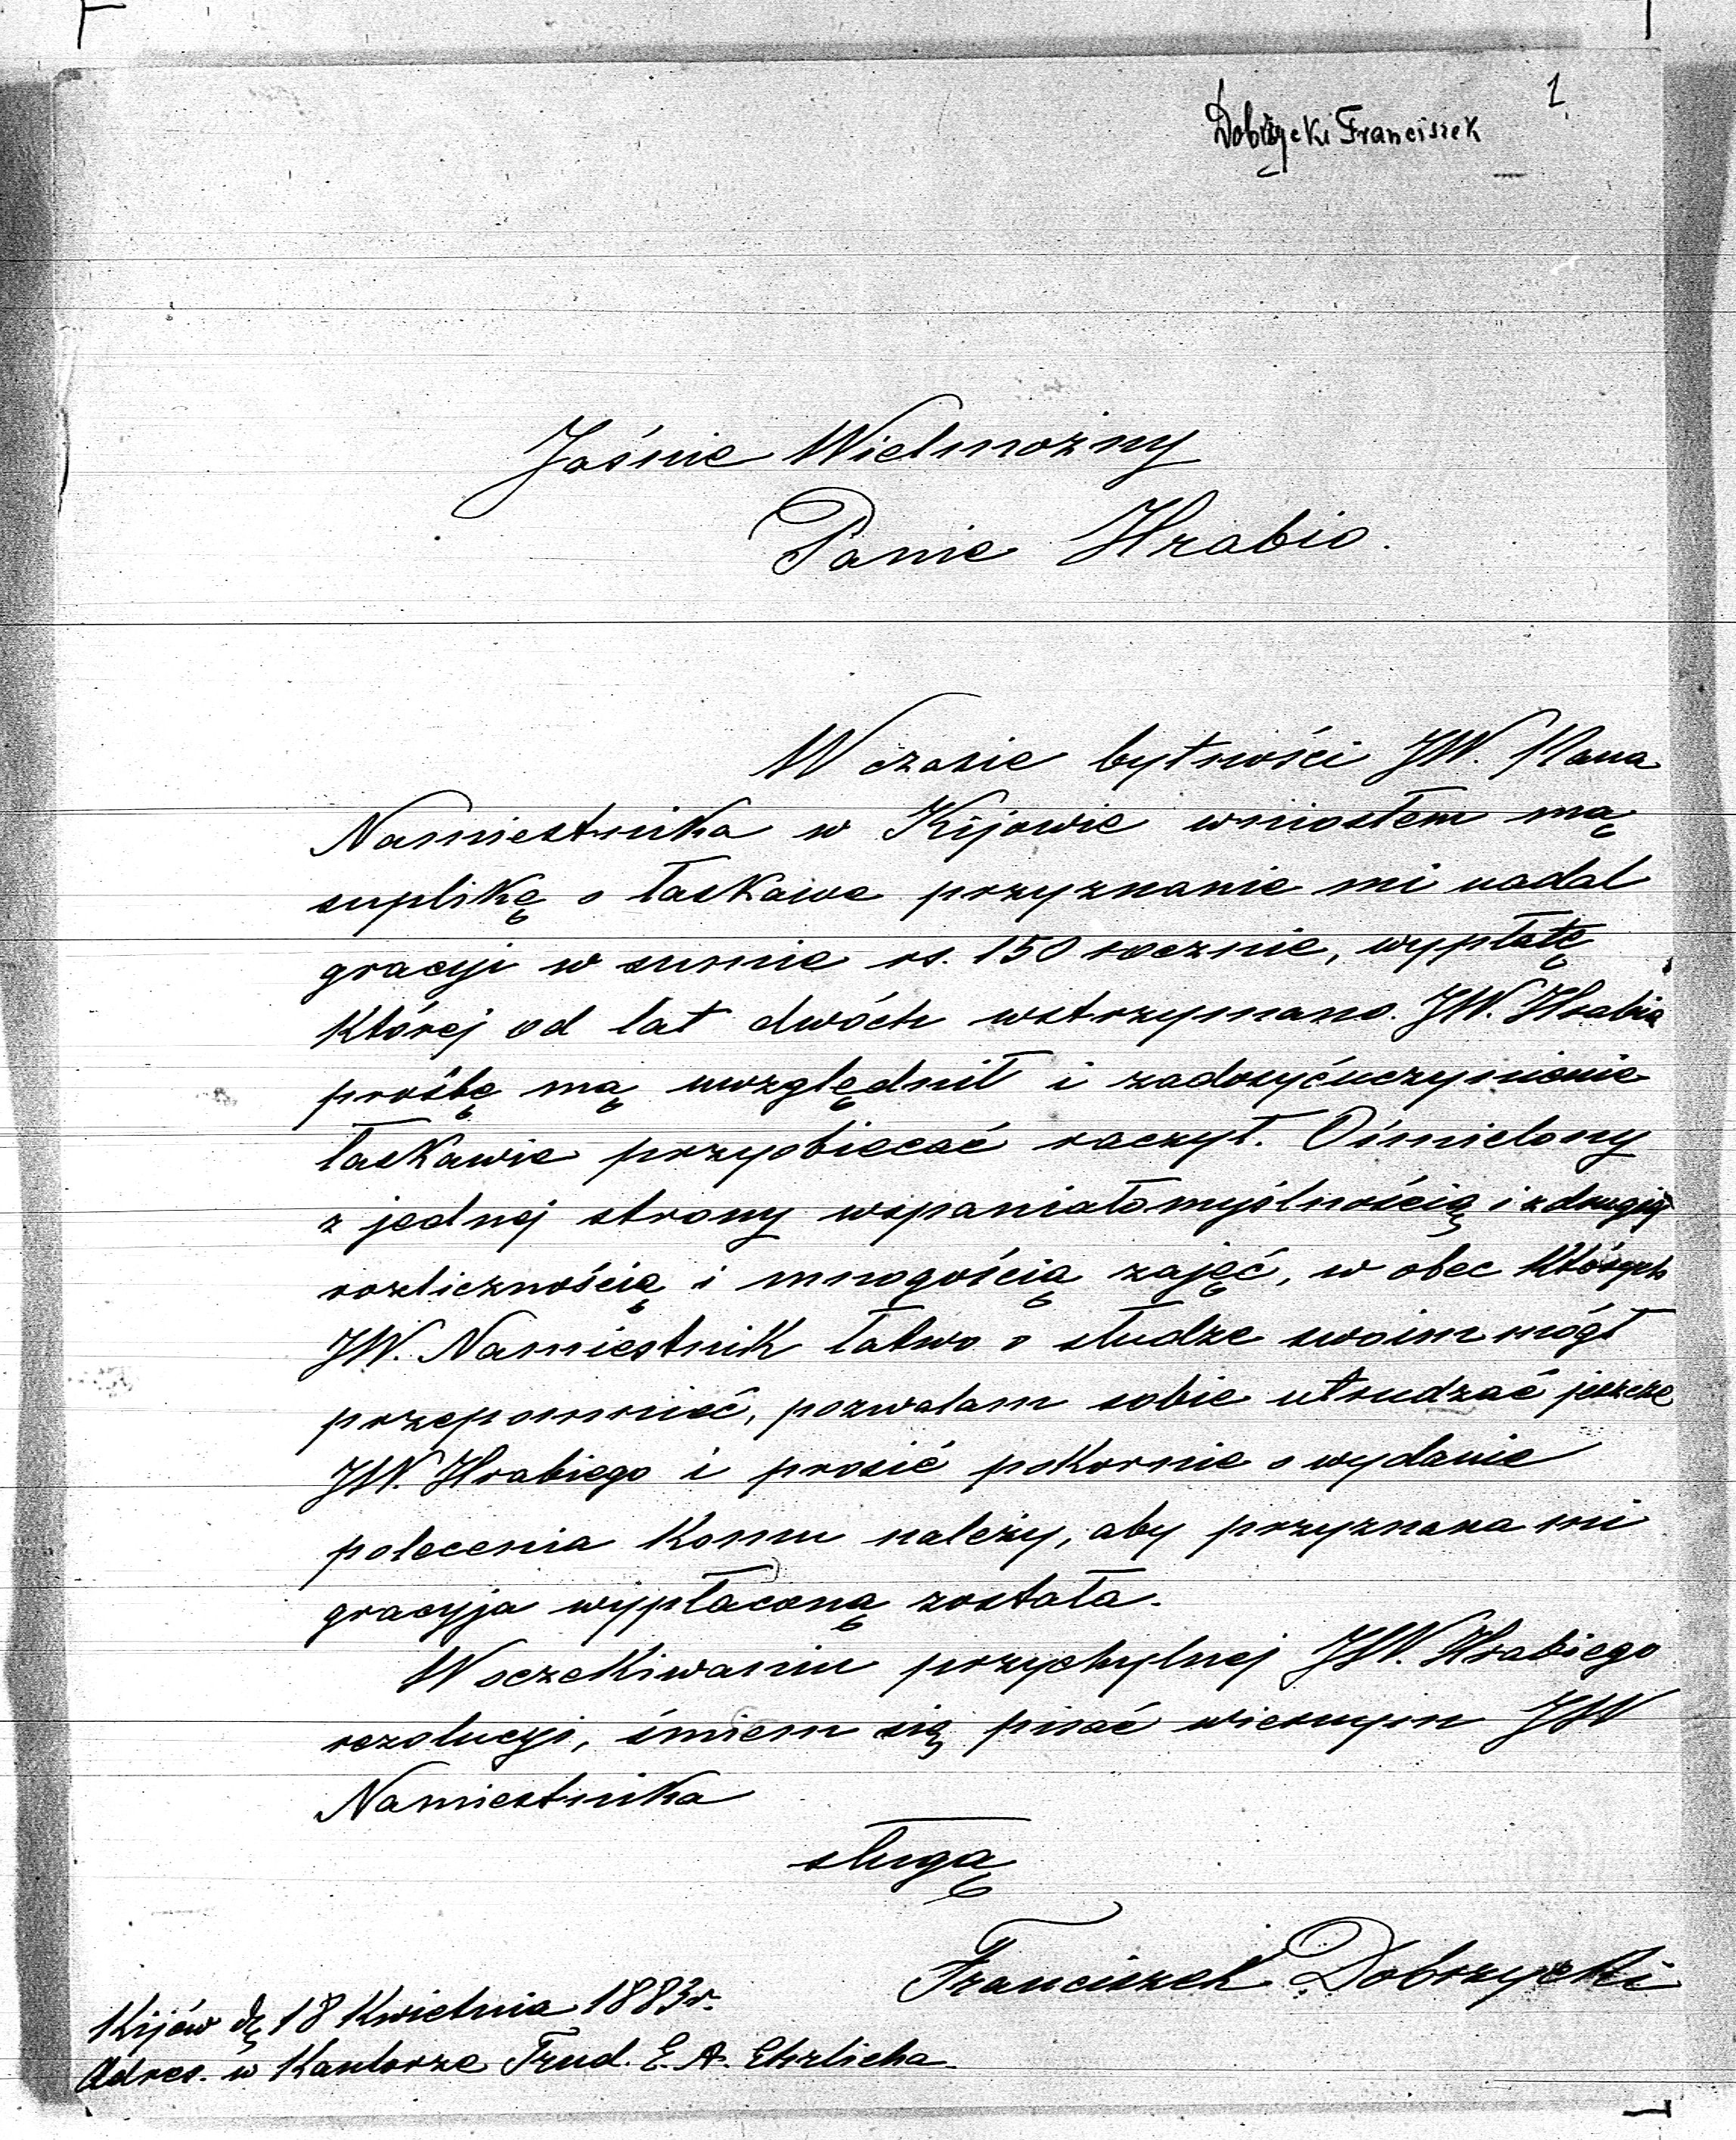 1
Dobrzycki Franciszek
Jaśnie Wielmożny
Panie Hrabio.
W czasie bytności JW. Pana
Namiestnika w Kijowie wniosłem mą
suplikę o łaskawe przyznanie mi nadal
gracyi w sumie rs. 150 rocznie, wypłatę
której od lat dwóch wstrzymano. JW. Hrabia
prośbę mą uwzględnił i zadosyćuczynienie
łaskawie przyobiecać raczył. Ośmielony
z jednej strony wspaniałomyślnością i z drugiej
rozlicznością i mnogością zajęć, w obec których
JW. Namiestnik łatwo o słudze swoim mógł
przepomnieć, pozwalam sobie utrudzać jeszcze
JW. Hrabiego i prosić pokornie o wydanie
polecenia komu należy, aby przyznana mi
gracyja wypłaconą została.
W oczekiwaniu przychylnej JW. Hrabiego
rezolucyi, śmiem się pisać wiernym JW
Namiestnika
sługą
Franciszek Dobrzycki
Kijów d. 18 Kwietnia 1883 r.
Adres. w Kantorze Trud. E. A. Ehrlicha.